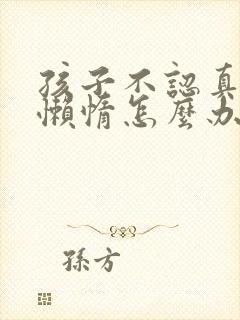 孩子不認真
懶惰怎麼办
孫方